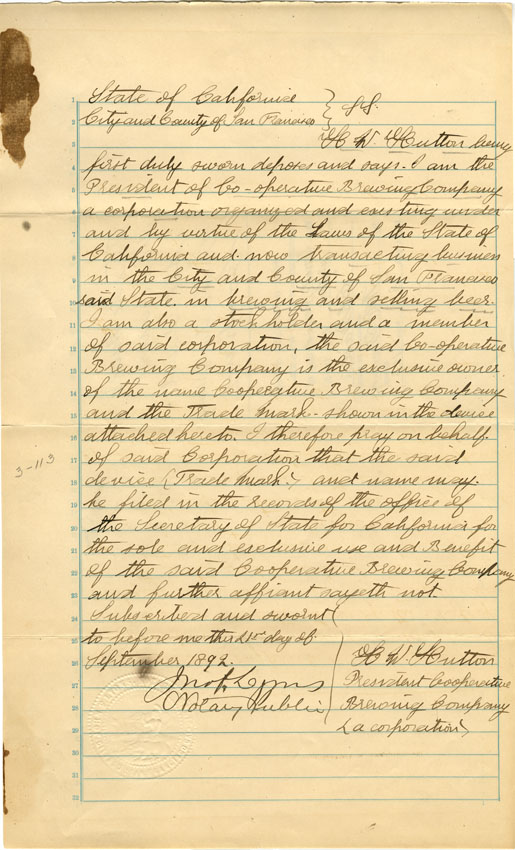 State of California
City and County of San Francisco } SS.
H W Hutton being
first duly sworn deposes and says. I am the
President of Co-operative Brewing Company
a corporation organized and existing under
and by virtue of the Laws of the State of
California and now transacting business
in the City and County of San Francisco
said State in brewing and selling beer.
I am also a stockholder and a member
of said corporation, the said Co-operative
Brewing Company is the exclusive owner
of the name Cooperative Brewing Company
and the Trade Mark. shown in the device
attached hereto. I therefore pray on behalf
of said Corporation that the said
device (Trade Mark.) and name may.
be filed in the records of the office of
the Secretary of State for California for
the sole and exclusive use and Benefit
of the said Cooperative Brewing Company
and further affiant sayeth not.
Subscribed and sworn
to before me this 21st day of
September 1892.
Notary Public
H W Hutton
President Cooperative
Brewing Company
(a corporation)
3-113
1
2
3
4
5
6
7
8
9
10
11
12
13
14
15
16
17
18
19
20
21
22
23
24
25
26
27
28
29
30
31
32